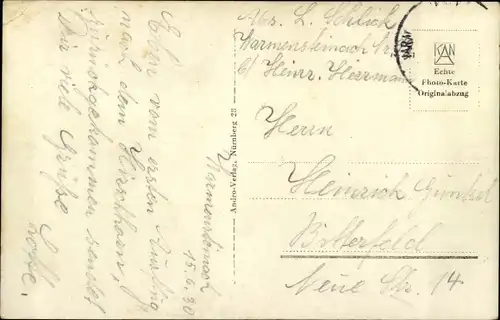 Abs. L. Schlick
Warmensteinach
b/ Heinr. Herrmann
Echte
Photo-Karte
Originalabzug
Herrn
Heinrich Günthel
Bitterfeld
Neue Str. 14
Andro-Verlag, Nürnberg 23
Warmensteinach
15.6.30
Eben vom ersten Ausflug
nach dem
zurückgekommen sendet
Dir viele Grüße
Lotte.